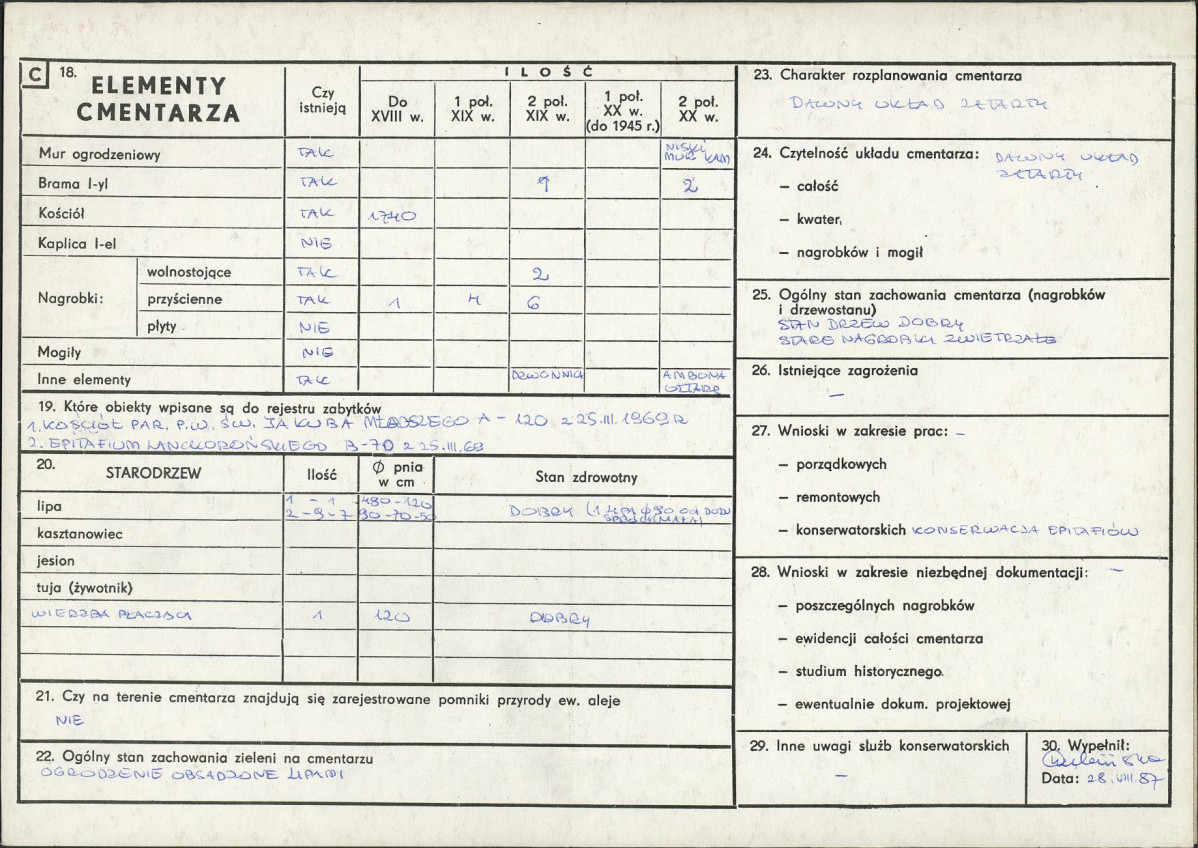 C 18. ELEMENTY CMENTARZA
Czy istnieją
ILOŚĆ
Do XVIII w.
1 poł. XIX w.
2 poł. XIX w.
1 poł. XX w. (do 1945 r.)
2 poł. XX w.
Mur ogrodzeniowy TAK NISKI MUR KAM
Brama I-yl TAK 1 2
Kościół TAK 1740
Kaplica I-el NIE
Nagrobki:
wolnostojące TAK 2
przyścienne TAK 1 4 6
płyty NIE
Mogiły NIE
Inne elementy TAK DZWONNICA AMBONA OŁTARZ
19. Które obiekty wpisane są do rejestru zabytków
1. KOŚCIÓŁ PAR. P.W. ŚW. JAKUBA MŁODSZEGO A – 120 z 25.III.1969 R
2. EPITAFIUM LANCKOROŃSKIEGO B-70 z 25.III.69
20. STARODRZEW
Ilość
Ø pnia w cm
Stan zdrowotny
lipa 1 – 1 – 480 – 120
2 – 9 – 7 90 – 70 – 50 DOBRY (1 LIPA φ 90 OD DOŁU
kasztanowiec
jesion
tuja (żywotnik)
WIERZBA PŁACZĄCA 1 120 DOBRY
21. Czy na terenie cmentarza znajdują się zarejestrowane pomniki przyrody ew. aleje
NIE
22. Ogólny stan zachowania zieleni na cmentarzu
OGRODZENIE OBSADZONE LIPAMI
23. Charakter rozplanowania cmentarza
DAWNY UKŁAD ZATARTY
24. Czytelność układu cmentarza: DAWNY UKŁAD
ZATARTY
– całość
– kwater,
– nagrobków i mogił
25. Ogólny stan zachowania cmentarza (nagrobków
i drzewostanu)
STAN DRZEW DOBRY
STARE NAGROBKI ZWIETRZAŁE
26. Istniejące zagrożenia
–
27. Wnioski w zakresie prac: –
– porządkowych
– remontowych
– konserwatorskich KONSERWACJA EPITAFIÓW
28. Wnioski w zakresie niezbędnej dokumentacji: –
– poszczególnych nagrobków
– ewidencji całości cmentarza
– studium historycznego.
– ewentualnie dokum. projektowej
29. Inne uwagi służb konserwatorskich
–
30. Wypełnił:
Data: 28.VIII.87